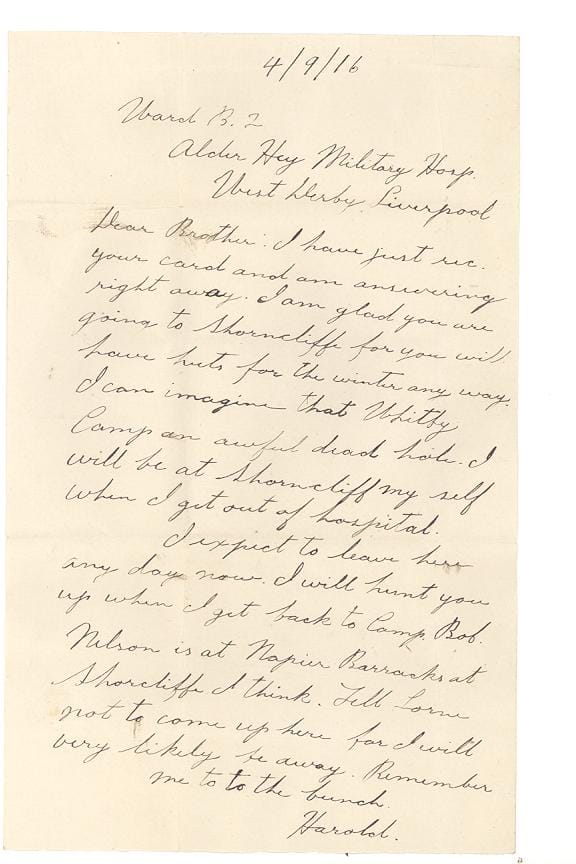 4/9/16
Ward B. 2
Alder Hey Military Hosp.
West Derby Liverpool
Dear Brother: I have just rec.
your card and am answering
right away. I am glad you are
going to Shorncliffe for you will
have huts for the winter any way.
I can imagine that Whitby
Camp an awful dead hole. I
will be at Shorncliff my self
when I get out of hospital.
I expect to leave here
any day now. I will hunt you
up when I get back to Camp. Bob.
Nelson is at Napier Barracks at
Shorcliffe I think. Tell Lorne
not to come up here for I will
very likely be away. Remember
me to to the bunch.
Harold.